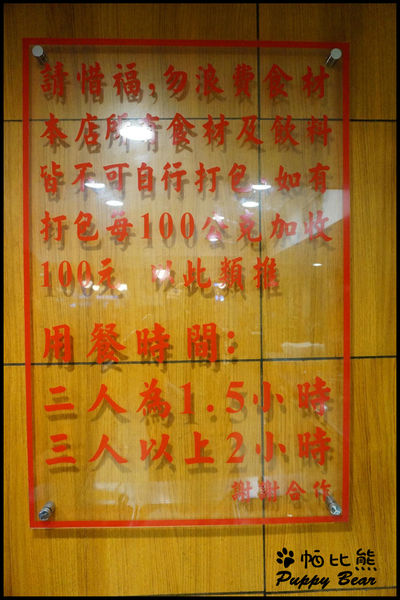 請惜福,勿浪費食材
本店所有食材及飲料
皆不可自行打包,如有
打包每100公克加收
100元 以此類推
用餐時間:
二人為1.5小時
三人以上2小時
謝謝合作
帕比熊
Puppy Bear